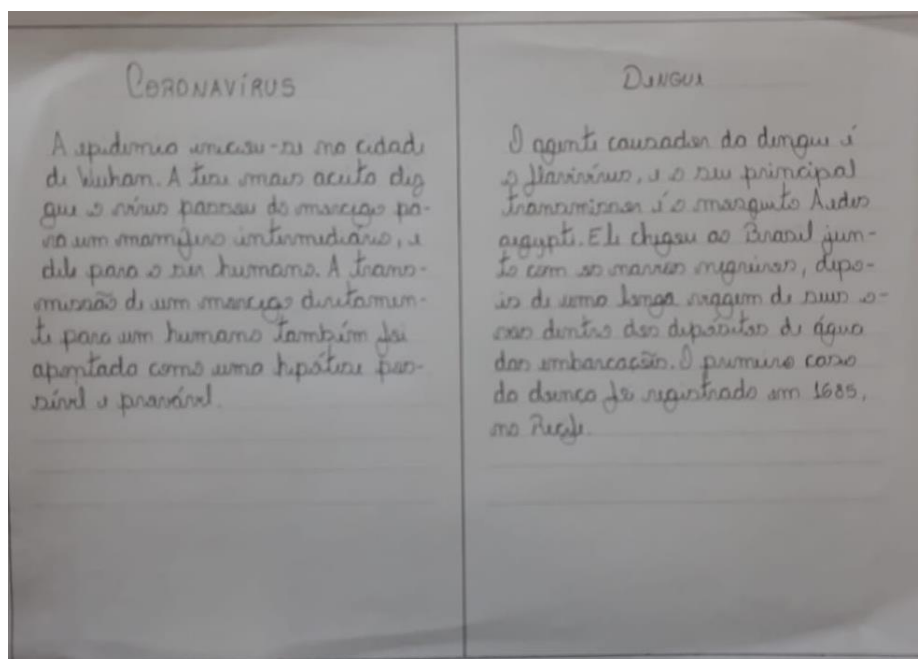 CORONAVÍRUS
A epidemia iniciou-se na cidade
de Wuham. A tese mais aceita diz
que o vírus passou do morcego pa-
ra um mamífero intermediário, e
dele para o ser humano. A trans-
missão de um morcego diretamen-
te para um humano também foi
apontada como uma hipótese pos-
sível e provável.
DENGUE
O agente causador da dengue é
o flavivírus, e o seu principal
transmissor é o mosquito Aedes
aegypti. Ele chegou ao Brasil jun-
to com os navios negreiros, depo-
is de uma longa viagem de seus o-
vos dentro dos depósitos de água
das embarcações. O primeiro caso
da doença foi registrado em 1685,
no Recife.